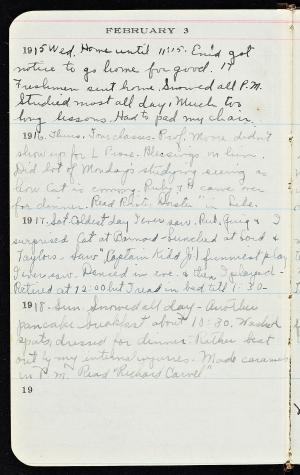 FEBRUARY 3
1915 Wed. Home until 11:15. Enid got
notice to go home for good. 17
Freshmen sent home. Snowed all P.M.
Studied most all day. Much too
long lessons. Had to pad my chair.
1916. Thurs. Four classes. Prof. Moore didn't
show up for L. Prose. Blessings on him.
Did lot of Monday's studying seeing as
how Cat is coming. Ruby & H came over
for dinner. Read in Libe.
1917. Sat. Coldest day I ever saw. Rub, & I
surprised Cat at Barnard - lunched at Lord &
Taylors - Saw "Captain Kidd Jr" funniest play
I ever saw. Danced in eve. & then played -
Retired at 12:00 but I read in bed till 1:30 -
1918 - Sun. Snowed all day - Another
pancake breakfast about 10:30. Washed
spats, dressed for dinner. Rather beat
out by my internal injuries. Made caramels
in P.M. Read "Richard Carvel"
19